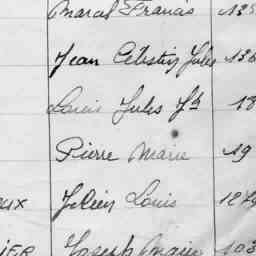 Marcel Francis 135
Jean Célestin Jules 136
Louis Jules Jh 18
Pierre Marie 19
Louis 129
Joseph Marie 103